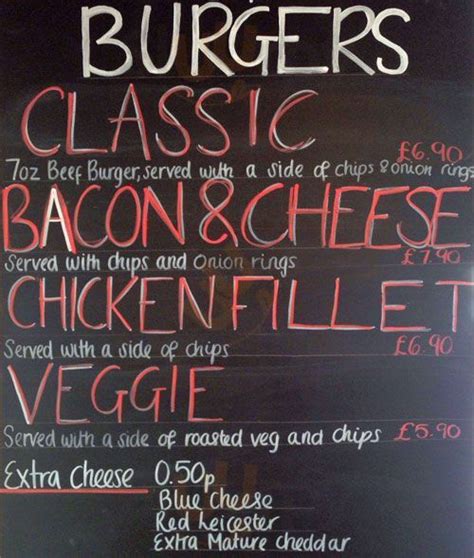 BURGERS
CLASSIC
£6.90
7oz Beef Burger, served with a side of chips & onion rings
BACON & CHEESE
Served with chips and onion rings £7.90
CHICKEN FILLET
Served with a side of chips £6.90
VEGGIE
Served with a side of roasted veg and chips £5.90
Extra Cheese 0.50p
Blue Cheese
Red Leicester
Extra Mature Cheddar